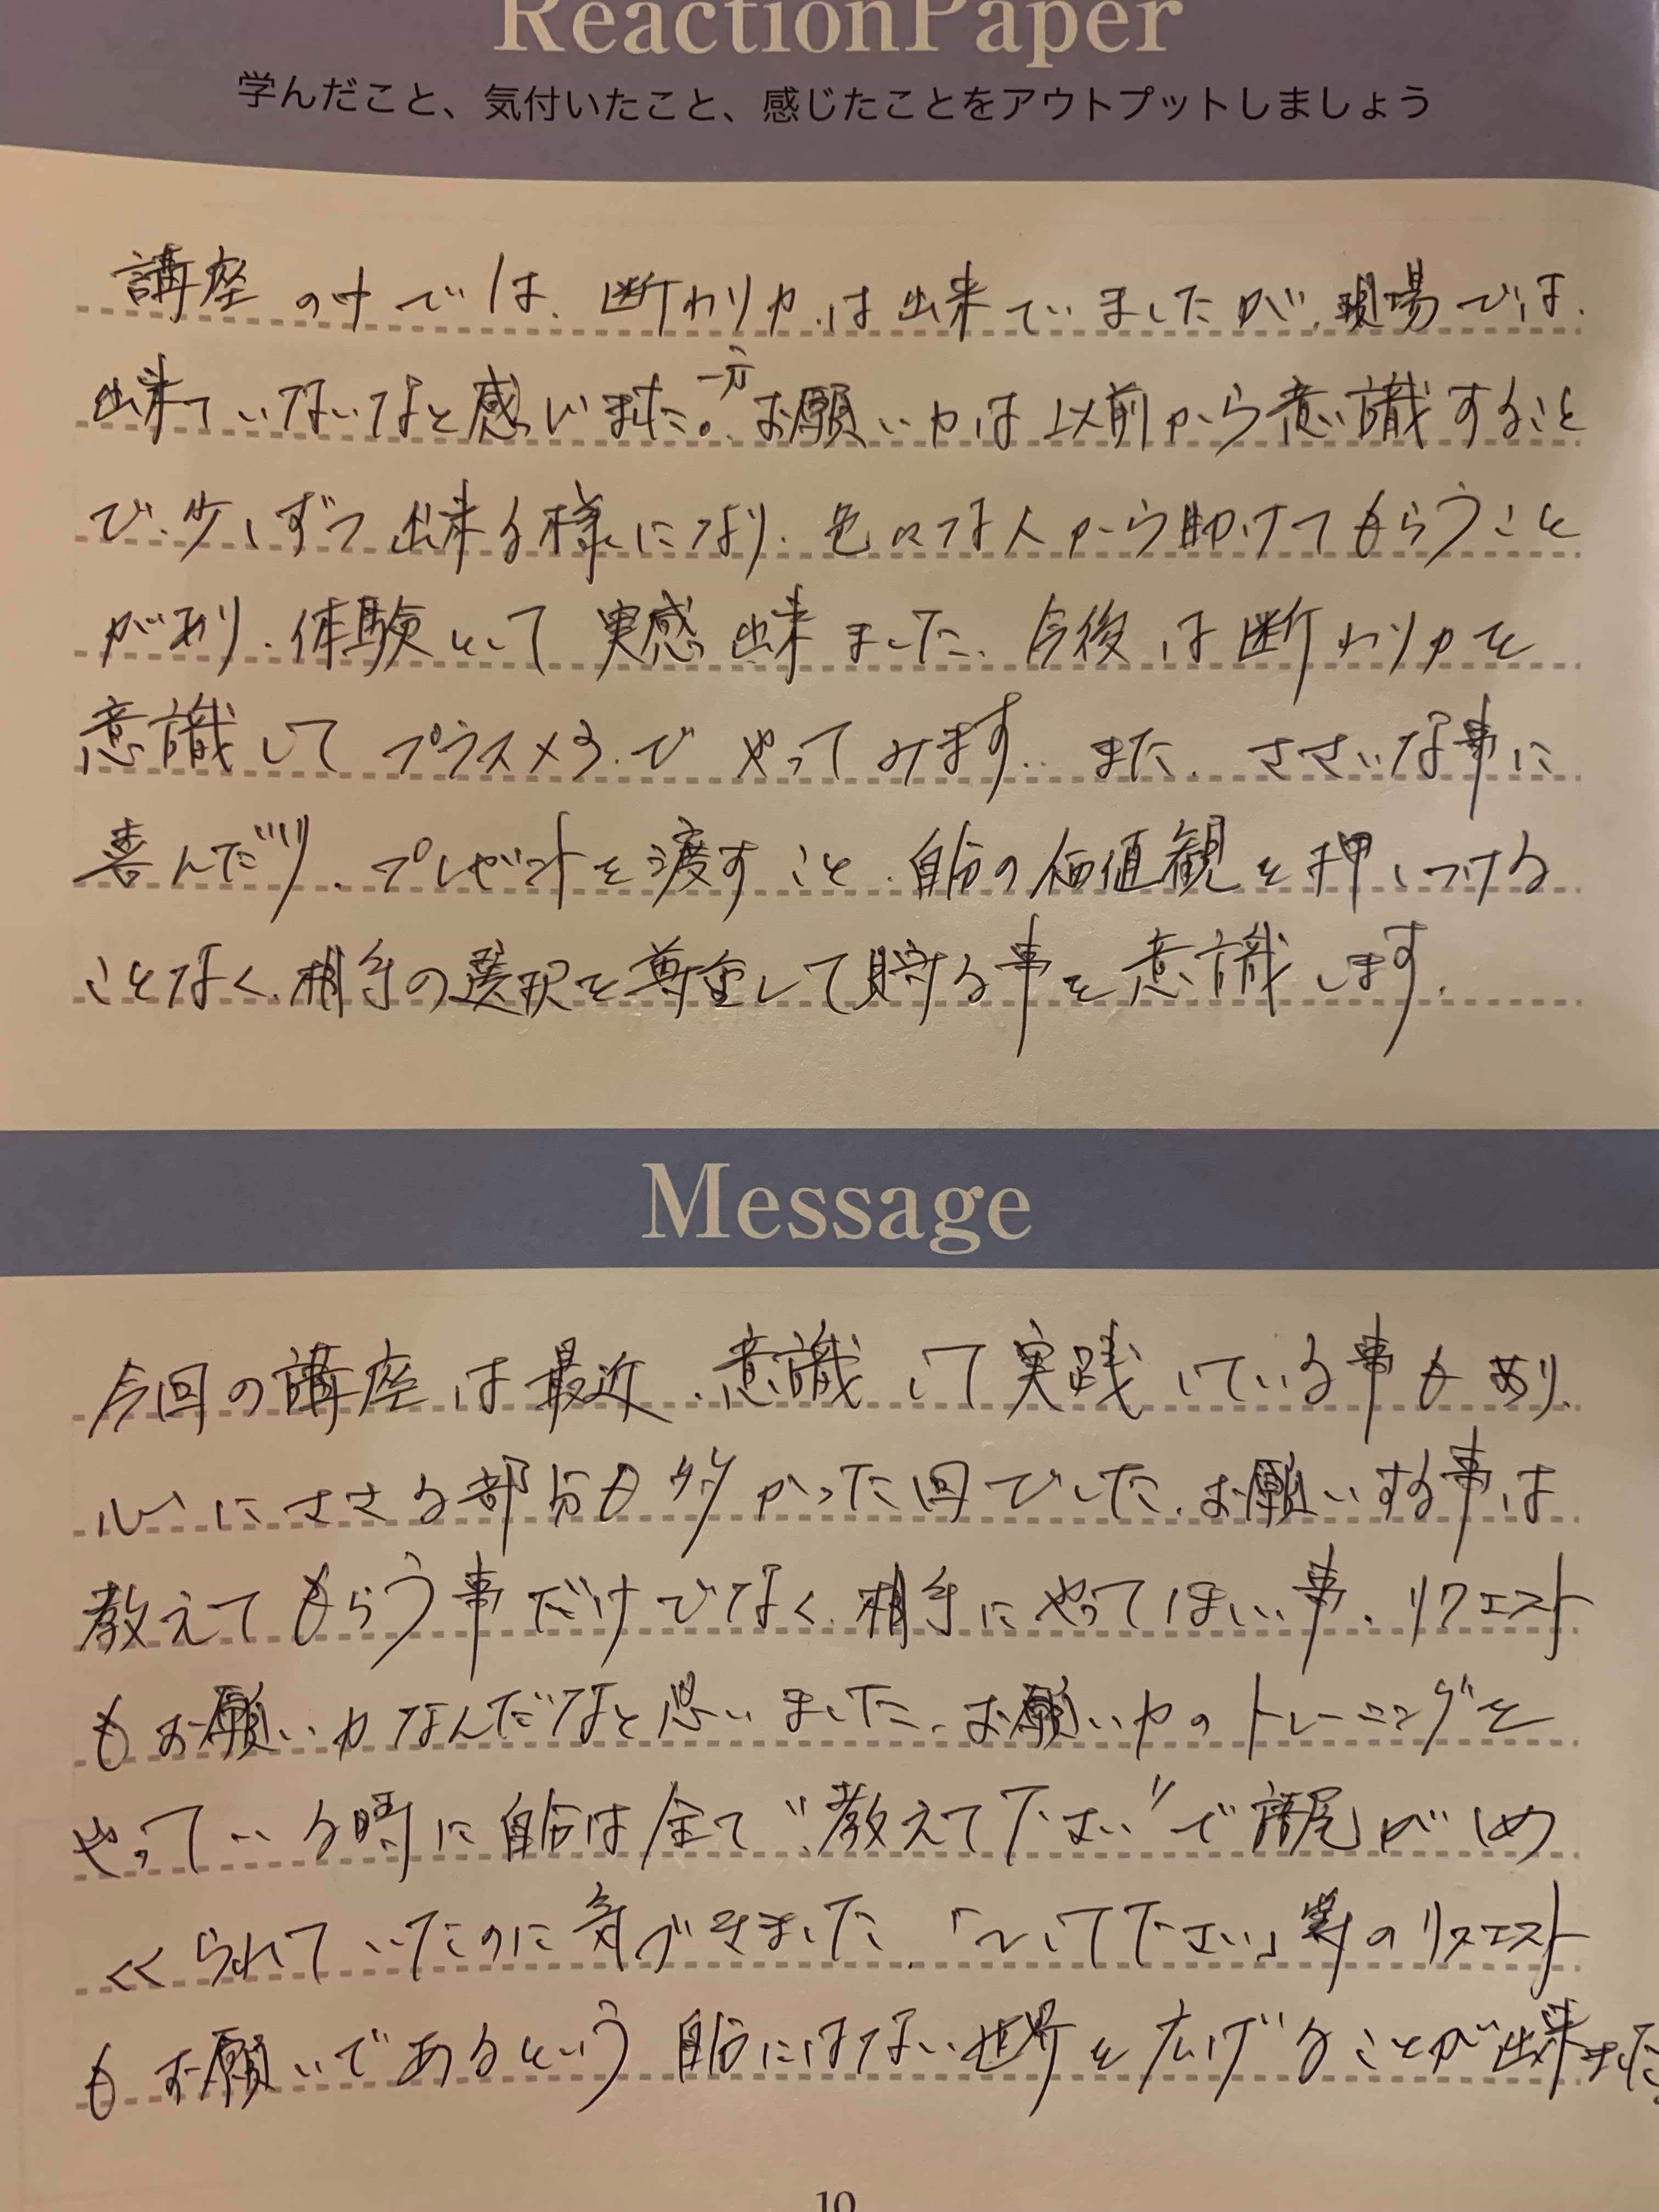 ReactionPaper
学んだこと、気付いたこと、感じたことをアウトプットしましょう
講座の中では、断わり力は出来ていましたが、現場では、
出来ていないなと感じました。一方お願い力は以前から意識すること
で、少しずつ出来る様になり、色々な人から助けてもらうこと
があり、体験として実感出来ました。今後は断わり力を
意識してプラスメラでやってみます。また、ささいな事に
喜んだり、プレゼントを渡すこと、自分の価値観を押しつける
ことなく、相手の選択を尊重して貯める事を意識します。
Message
今回の講座は最近、意識して実践している事もあり、
心にささる部分も多かった回でした。お願いする事は
教えてもらう事だけでなく、相手にやってほしい事、リクエスト
もお願い力なんだなと思いました。お願い力のトレーニングを
やっている時に自分は全て"教えて下さい"で語尾がしめ
くくられていたのに気づきました。「〜して下さい」等のリクエスト
もお願いであるという自分にはない世界を広げることが出来ました。
10